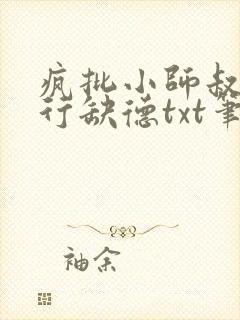 疯批小師叔
行缺德txt筆
袖余